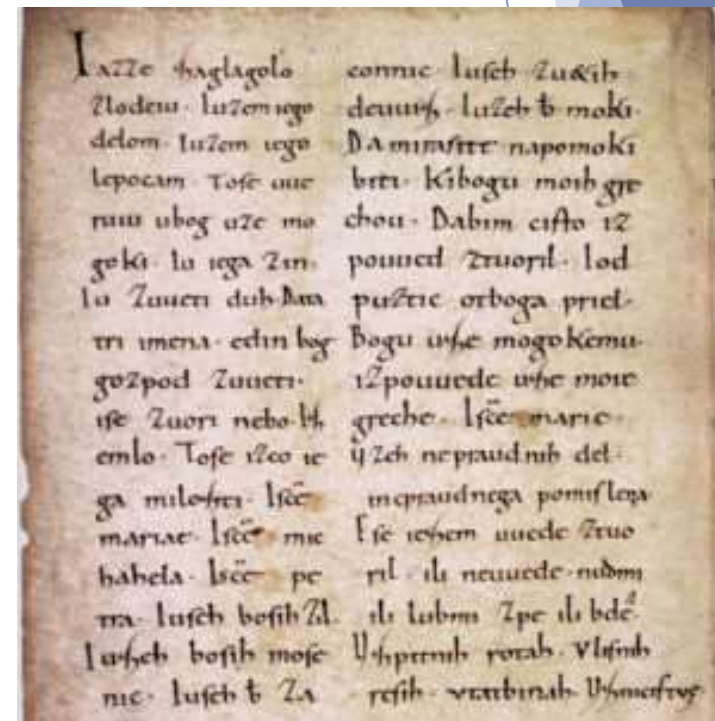 Iazze zaglagolo
zlodeiu. Iuzem iego
delom. Iuzem iego
lepocam. Tose uue
ruiu ubog uze mo
goki. Iu iega zin.
Iu zuueti duh. Data
tri imena. edin bog
gozpod zuueti.
ise zuori nebo. Iz
emlo. Tose izco ie
ga milozti. Isce
mariae. Isce mic
hahela. Isce pe
tra. Iuseh bosih zil.
Iuzeh bosih mose
nic. Iuseh b za
connic. Iuseh zuetih
deuuiz. Iuzeh b moki.
Da mi raste napomoki
biti. Kibogu moih gre
chou. Dabim cisto iz
pouued ztuoril. Iod
puztic otboga priel.
Bogu uze mogokemu.
izpouuede uze moie
greche. Isce marie.
uzeh nepraudnih del.
inepraudnega pomislena.
Ese iezem uuede ztuo
ril. ili neuuede. nudmi
ili lubmi zpe ili bde.
Uzpitnih rotah. Vlisnih
resih. vtatbinah.